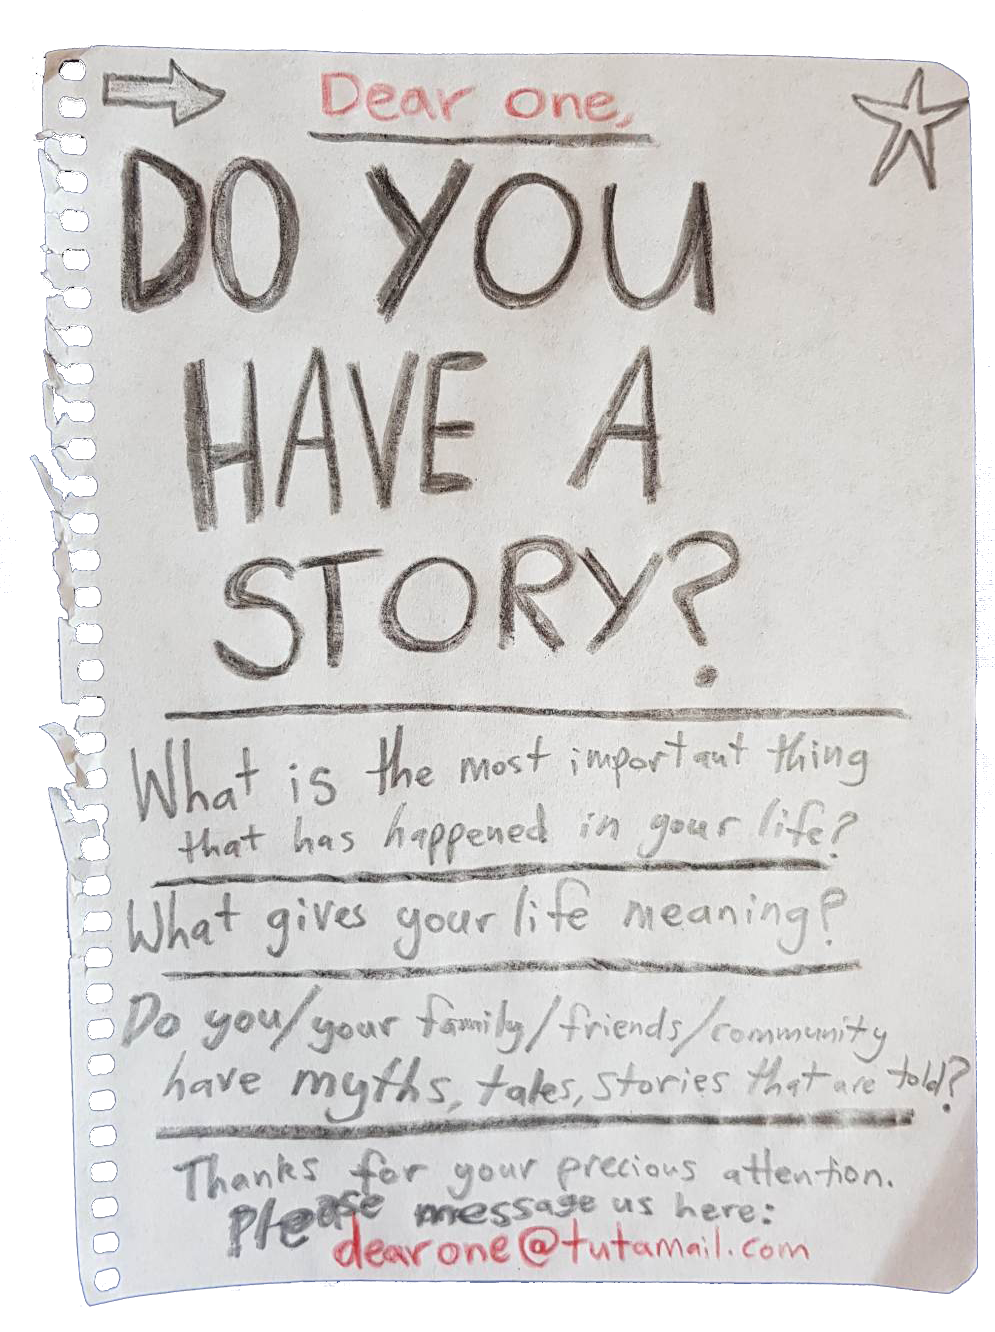 Dear one,
DO YOU
HAVE A
STORY?
What is the most important thing
that has happened in your life?
What gives your life meaning?
Do you/your family/friends/community
have myths, tales, stories that are told?
Thanks for your precious attention.
Please message us here:
dearone@tutamail.com